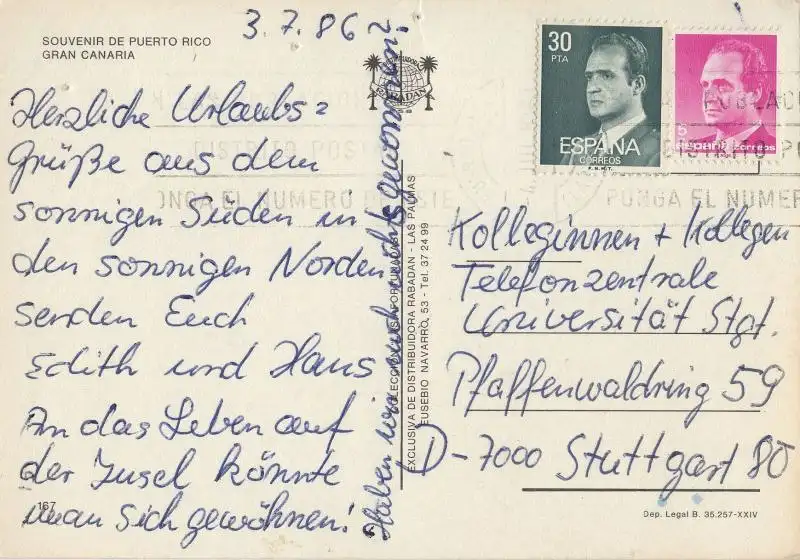 SOUVENIR DE PUERTO RICO
GRAN CANARIA
3.7.86
Herzliche Urlaubs=
grüße aus dem
sonnigen Süden in
den sonnigen Norden
senden Euch
Edith und Hans
An das Leben auf
der Insel könnte
man sich gewöhnen!
167
Haben wir auch nichts gewonnen?
DISTRIBUIDORA
RABADAN
EXCLUSIVA DE DISTRIBUIDORA RABADAN - LAS PALMAS
EUSEBIO NAVARRO, 53 - Tel. 37 24 99
30
PTA
ESPAÑA
CORREOS
F.N.M.T.
5
españa correos
DISTRITO POSTAL
PONGA EL NUMERO DE ESTE
PONGA EL NUMER
Kolleginnen + Kollegen
Telefonzentrale
Universität Stgt.
Pfaffenwaldring 59
D-7000 Stuttgart 80
Dep. Legal B. 35.257-XXIV